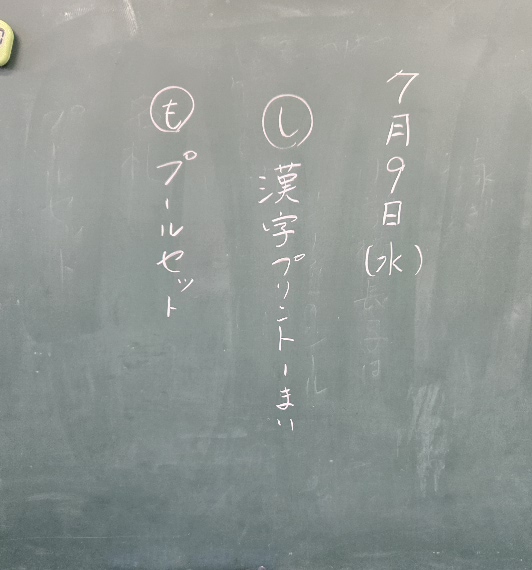 7月9日(水)
し 漢字プリント1まい
も プールセット